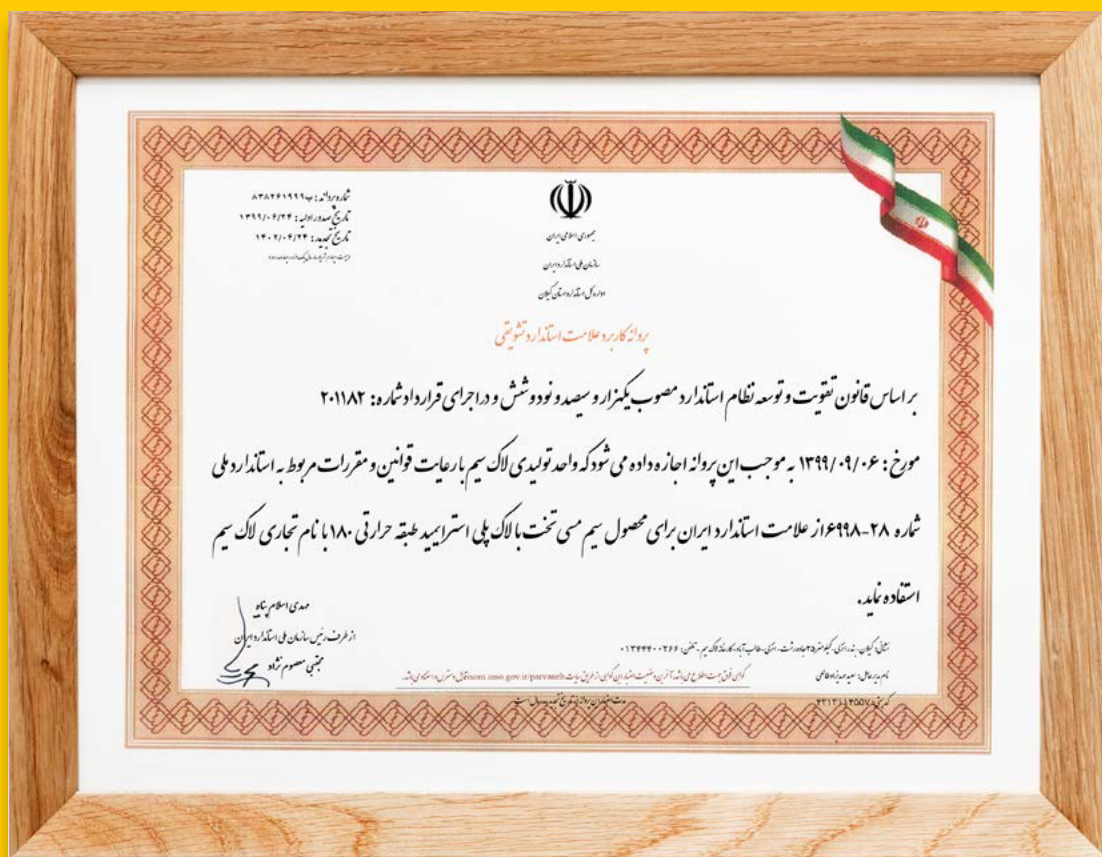 شماره پروانه: ب۸۳۸۲۶۱۹۹۹
تاریخ صدور اولیه: ۱۳۹۹/۰۶/۲۴
تاریخ تجدید: ۱۴۰۲/۰۶/۲۴
جمهوری اسلامی ایران
سازمان ملی استاندارد ایران
اداره کل استاندارد استان گیلان
پروانه کاربرد علامت استاندارد تشویقی
بر اساس قانون تقویت و توسعه نظام استاندارد مصوب یکهزار و سیصد و نود و شش و در اجرای قرارداد شماره: ۲۰۱۱۸۲
مورخ: ۱۳۹۹/۰۹/۰۶ به موجب این پروانه اجازه داده می شود که واحد تولیدی لاک سیم با رعایت قوانین و مقررات مربوط به استاندارد ملی
شماره ۲۸-۶۹۹۸ از علامت استاندارد ایران برای محصول سیم مسی تخت با لاک پلی استرایمید طبقه حرارتی ۱۸۰ با نام تجاری لاک سیم
استفاده نماید.
مهدی اسلام پناه
از طرف رئیس سازمان ملی استاندارد ایران
مجتبی معصوم نژاد
نشانی: گیلان - بندر انزلی - کیلومتر ۲۵ جاده رشت - انزلی - طالب آباد - کارخانه لاک سیم - تلفن: ۰۱۳۴۴۴۰۰۲۶۶
نام مدیر عامل: سعید
گواهی فوق جهت اطلاع می باشد، آخرین وضعیت اعتبار این گواهی از طریق سایت isom.inso.gov.ir/parvaneh قابل دسترس و استناد می باشد.
مدت اعتبار این پروانه از تاریخ تجدید سال است